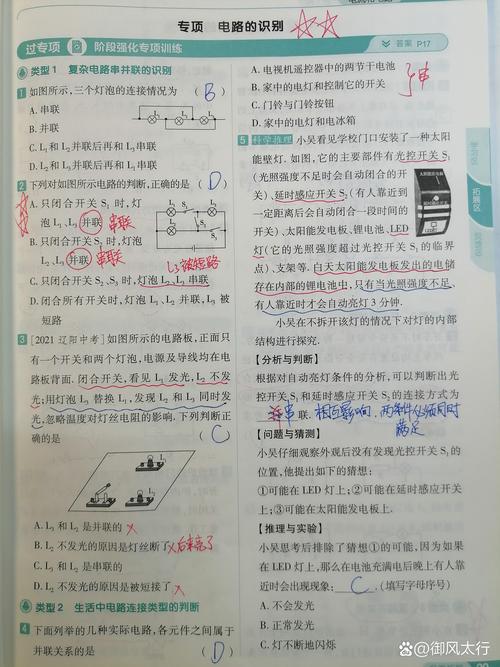 专项 电路的识别
过专项 阶段强化专项训练
答案 P17
类型1 复杂电路串并联的识别
1 如图所示,三个灯泡的连接情况为 ( B )
A. 串联
B. 并联
C. L₁和 L₂并联后再和 L₃串联
D. L₂和 L₃并联后再和 L₁串联
2 下列对如图所示电路的判断,正确的是 ( D )
A. 只闭合开关 S₁时,灯
泡 L₁、L₃并联 串联
B. 只闭合开关 S₂时,灯泡
L₂、L₃并联 串联
L₃被短路
C. 只闭合开关 S₂、S₃时,灯泡 L₁、L₂串联
D. 闭合所有开关时,灯泡 L₁、L₂并联,L₃被
短路
3 [2021 辽阳中考]如图所示的电路板,正面只
有一个开关和两个灯泡,电源及导线均在电
路板背面.闭合开关,看见 L₁发光,L₂不发
光;用灯泡 L₃替换 L₁,发现 L₂和 L₃同时发
光,忽略温度对灯丝电阻的影响.下列判断正
确的是 ( C )
L₂
L₁
L₃
A. L₃和 L₂是并联的 ×
B. L₂不发光的原因是灯丝断了 ×后来亮了
C. L₁和 L₂是串联的
D. L₂不发光的原因是被短接了 ×
类型2 生活中电路连接类型的判断
4 下面列举的几种实际电路,各元件之间属于
并联关系的是 ( D )
A. 电视机遥控器中的两节干电池
B. 家中的电灯和控制它的开关
C. 门铃与门铃按钮
D. 家中的电灯和电冰箱
串
5 科学推理 小吴看见学校门口安装了一种太阳
能壁灯.如图,它的主要部件有光控开关 S₁
(光照强度不足时会自动闭合的开
关)、延时感应开关 S₂(有人靠近到
一定距离后会自动闭合一段时间的
开关)、太阳能发电板、锂电池、LED
灯(它的光照强度超过光控开关 S₁的临界
点)、支架等.白天太阳能发电板发出的电储
存在内部的锂电池中,只有当光照强度不足、
有人靠近时才会自动亮灯 3 分钟.
小吴在不拆开该灯的情况下对灯的内部
结构进行探究.
【分析与判断】
根据对自动亮灯条件的分析,可以判断出光
控开关 S₁和延时感应开关 S₂的连接方式为
串 联. 相互影响,两条件必须同时
满足
【问题与猜测】
小吴仔细观察外观后没有发现光控开关 S₁的
位置,他提出如下的猜想:
①可能在 LED 灯上;②可能在延时感应开关
上;③可能在太阳能发电板上.
【推理与实验】
小吴思考后排除了猜想①的可能,因为如果
在 LED 灯上,那么在电池充满电后晚上有人靠
近时会出现现象: C .(填写字母序号)
A. 不会发光
B. 正常发光
C. 灯不断地闪烁
拓展区
@御风太行